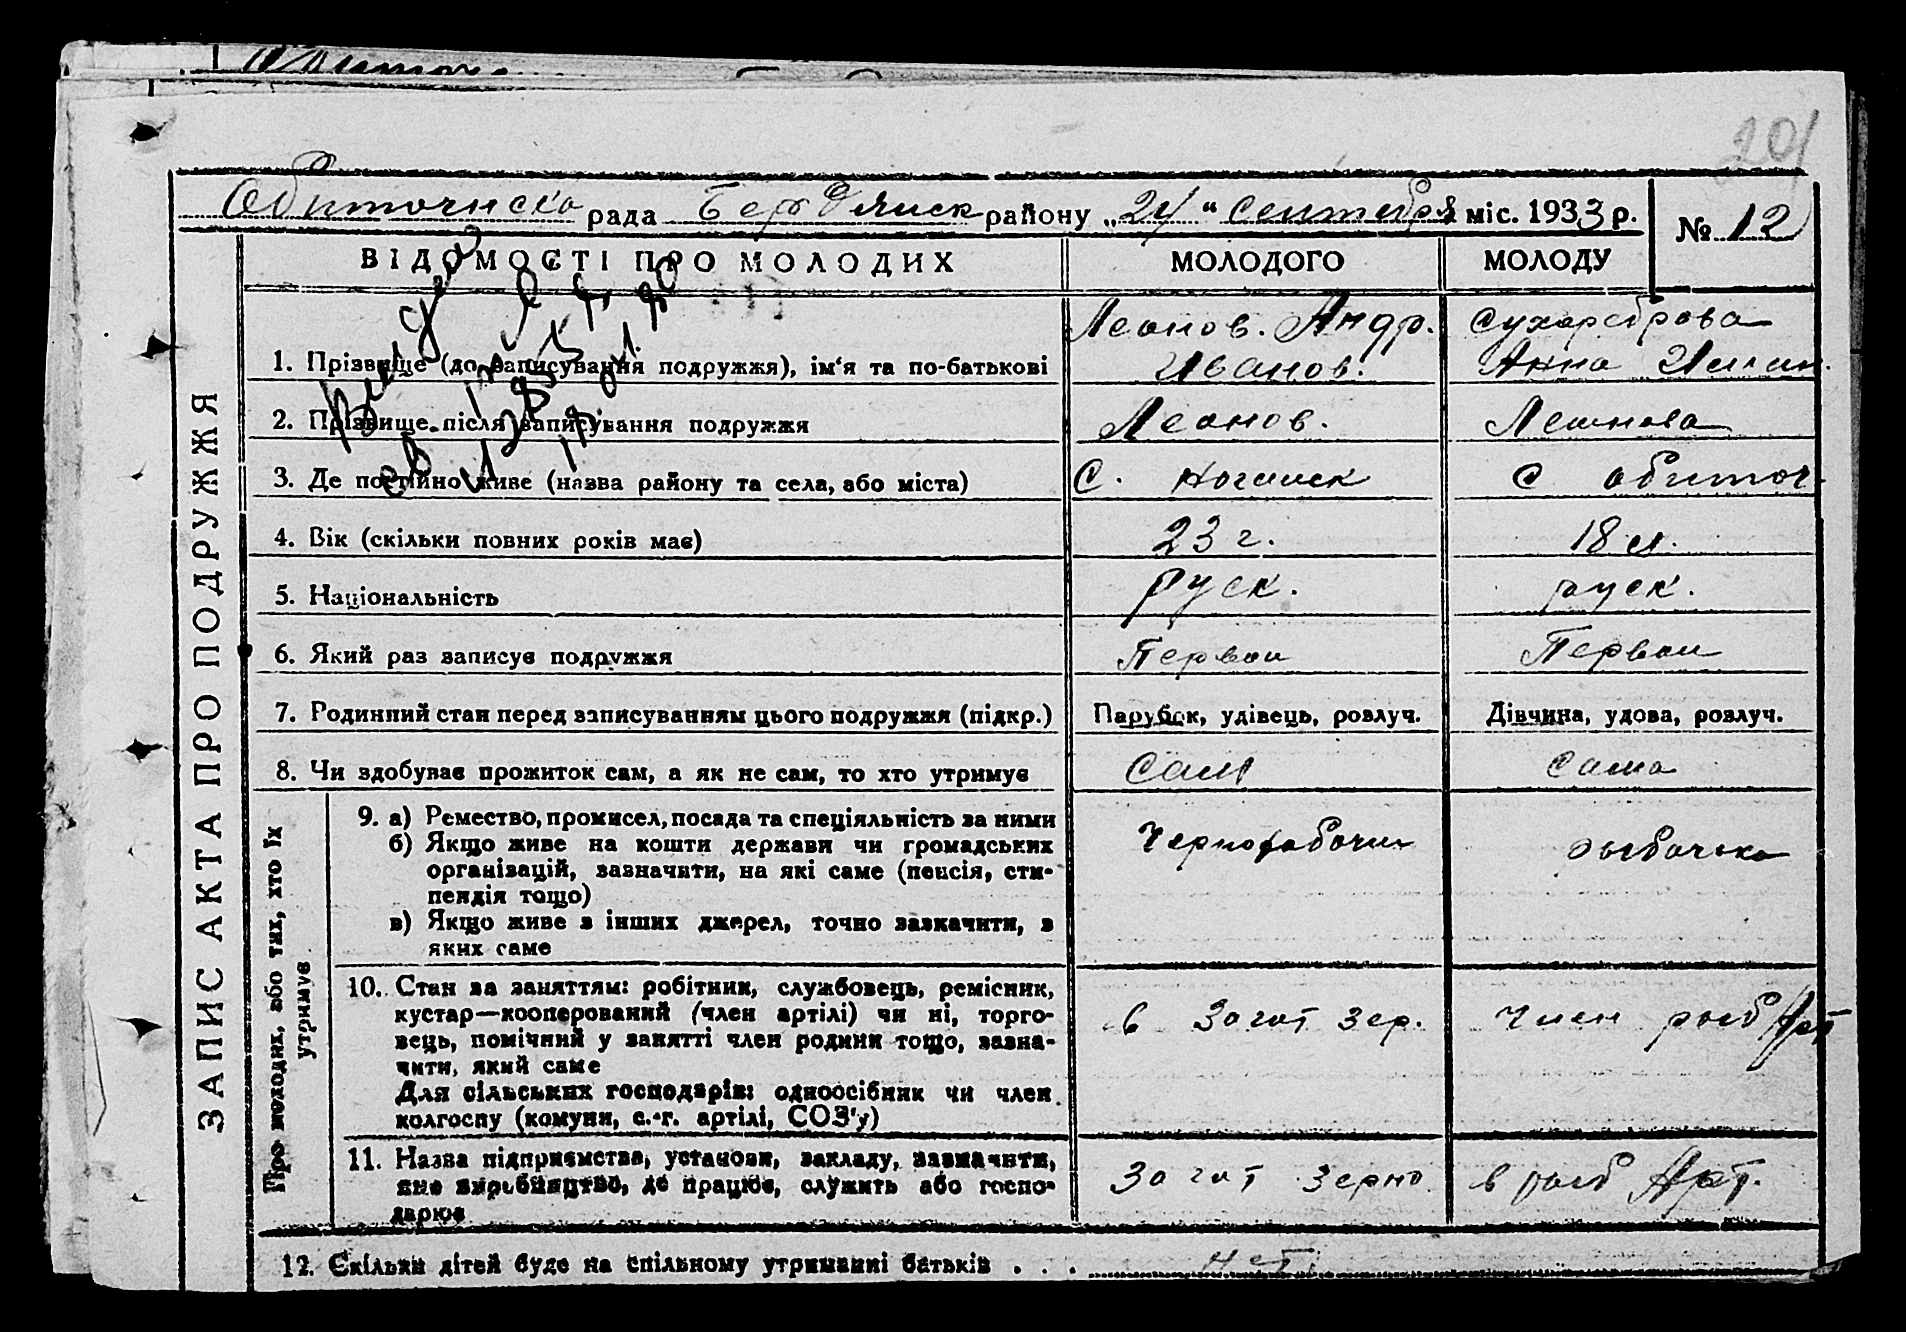 201
Обиточнска рада Бердянск району „24" сентебря міс. 1933 р.
№ 12
ВІДОМОСТІ ПРО МОЛОДИХ
МОЛОДОГО
МОЛОДУ
ЗАПИС АКТА ПРО ПОДРУЖЖЯ
1. Прізвище (до записування подружжя), ім'я та по-батькові
Леонов. Андр.
Иванов.
Сухореброва
Анна
2. Прізвище після записування подружжя
Леонов.
Леонова
3. Де постійно живе (назва району та села, або міста)
с. Ногайск
с обиточ.
4. Вік (скільки повних років має)
23 г.
18 л.
5. Національність
Руск.
руск.
6. Який раз записує подружжя
Первой
Первой
7. Родинний стан перед записуванням цього подружжя (підкр.)
Парубок, удівець, розлуч.
Дівчина, удова, розлуч.
8. Чи здобуває прожиток сам, а як не сам, то хто утримує
Сам
сама
Про молодих, або тих, хто їх
утримує
9. а) Ремество, промисел, посада та спеціяльність за ними
б) Якщо живе на кошти держави чи громадських
організацій, зазначити, на які саме (пенсія, сти-
пендія тощо)
в) Якщо живе з інших джерел, точно зазначити, з
яких саме
Чернорабочий
рыбачька
10. Стан за заняттям: робітник, службовець, ремісник,
кустар—кооперований (член артілі) чи ні, торго-
вець, помічний у занятті член родини тощо, зазна-
чити, який саме
Для сільських господарів: одноосібник чи член
колгоспу (комуни, с.-г. артілі, СОЗ'у)
в Загот зер.
член рыб Арт
11. Назва підприємства, установи, закладу, зазначити,
яке виробництво, де працює, служить або госпо-
дарює
Загот зерно
в рыб Арт.
12. Скільки дітей буде на спільному утриманні батьків . . .
нет